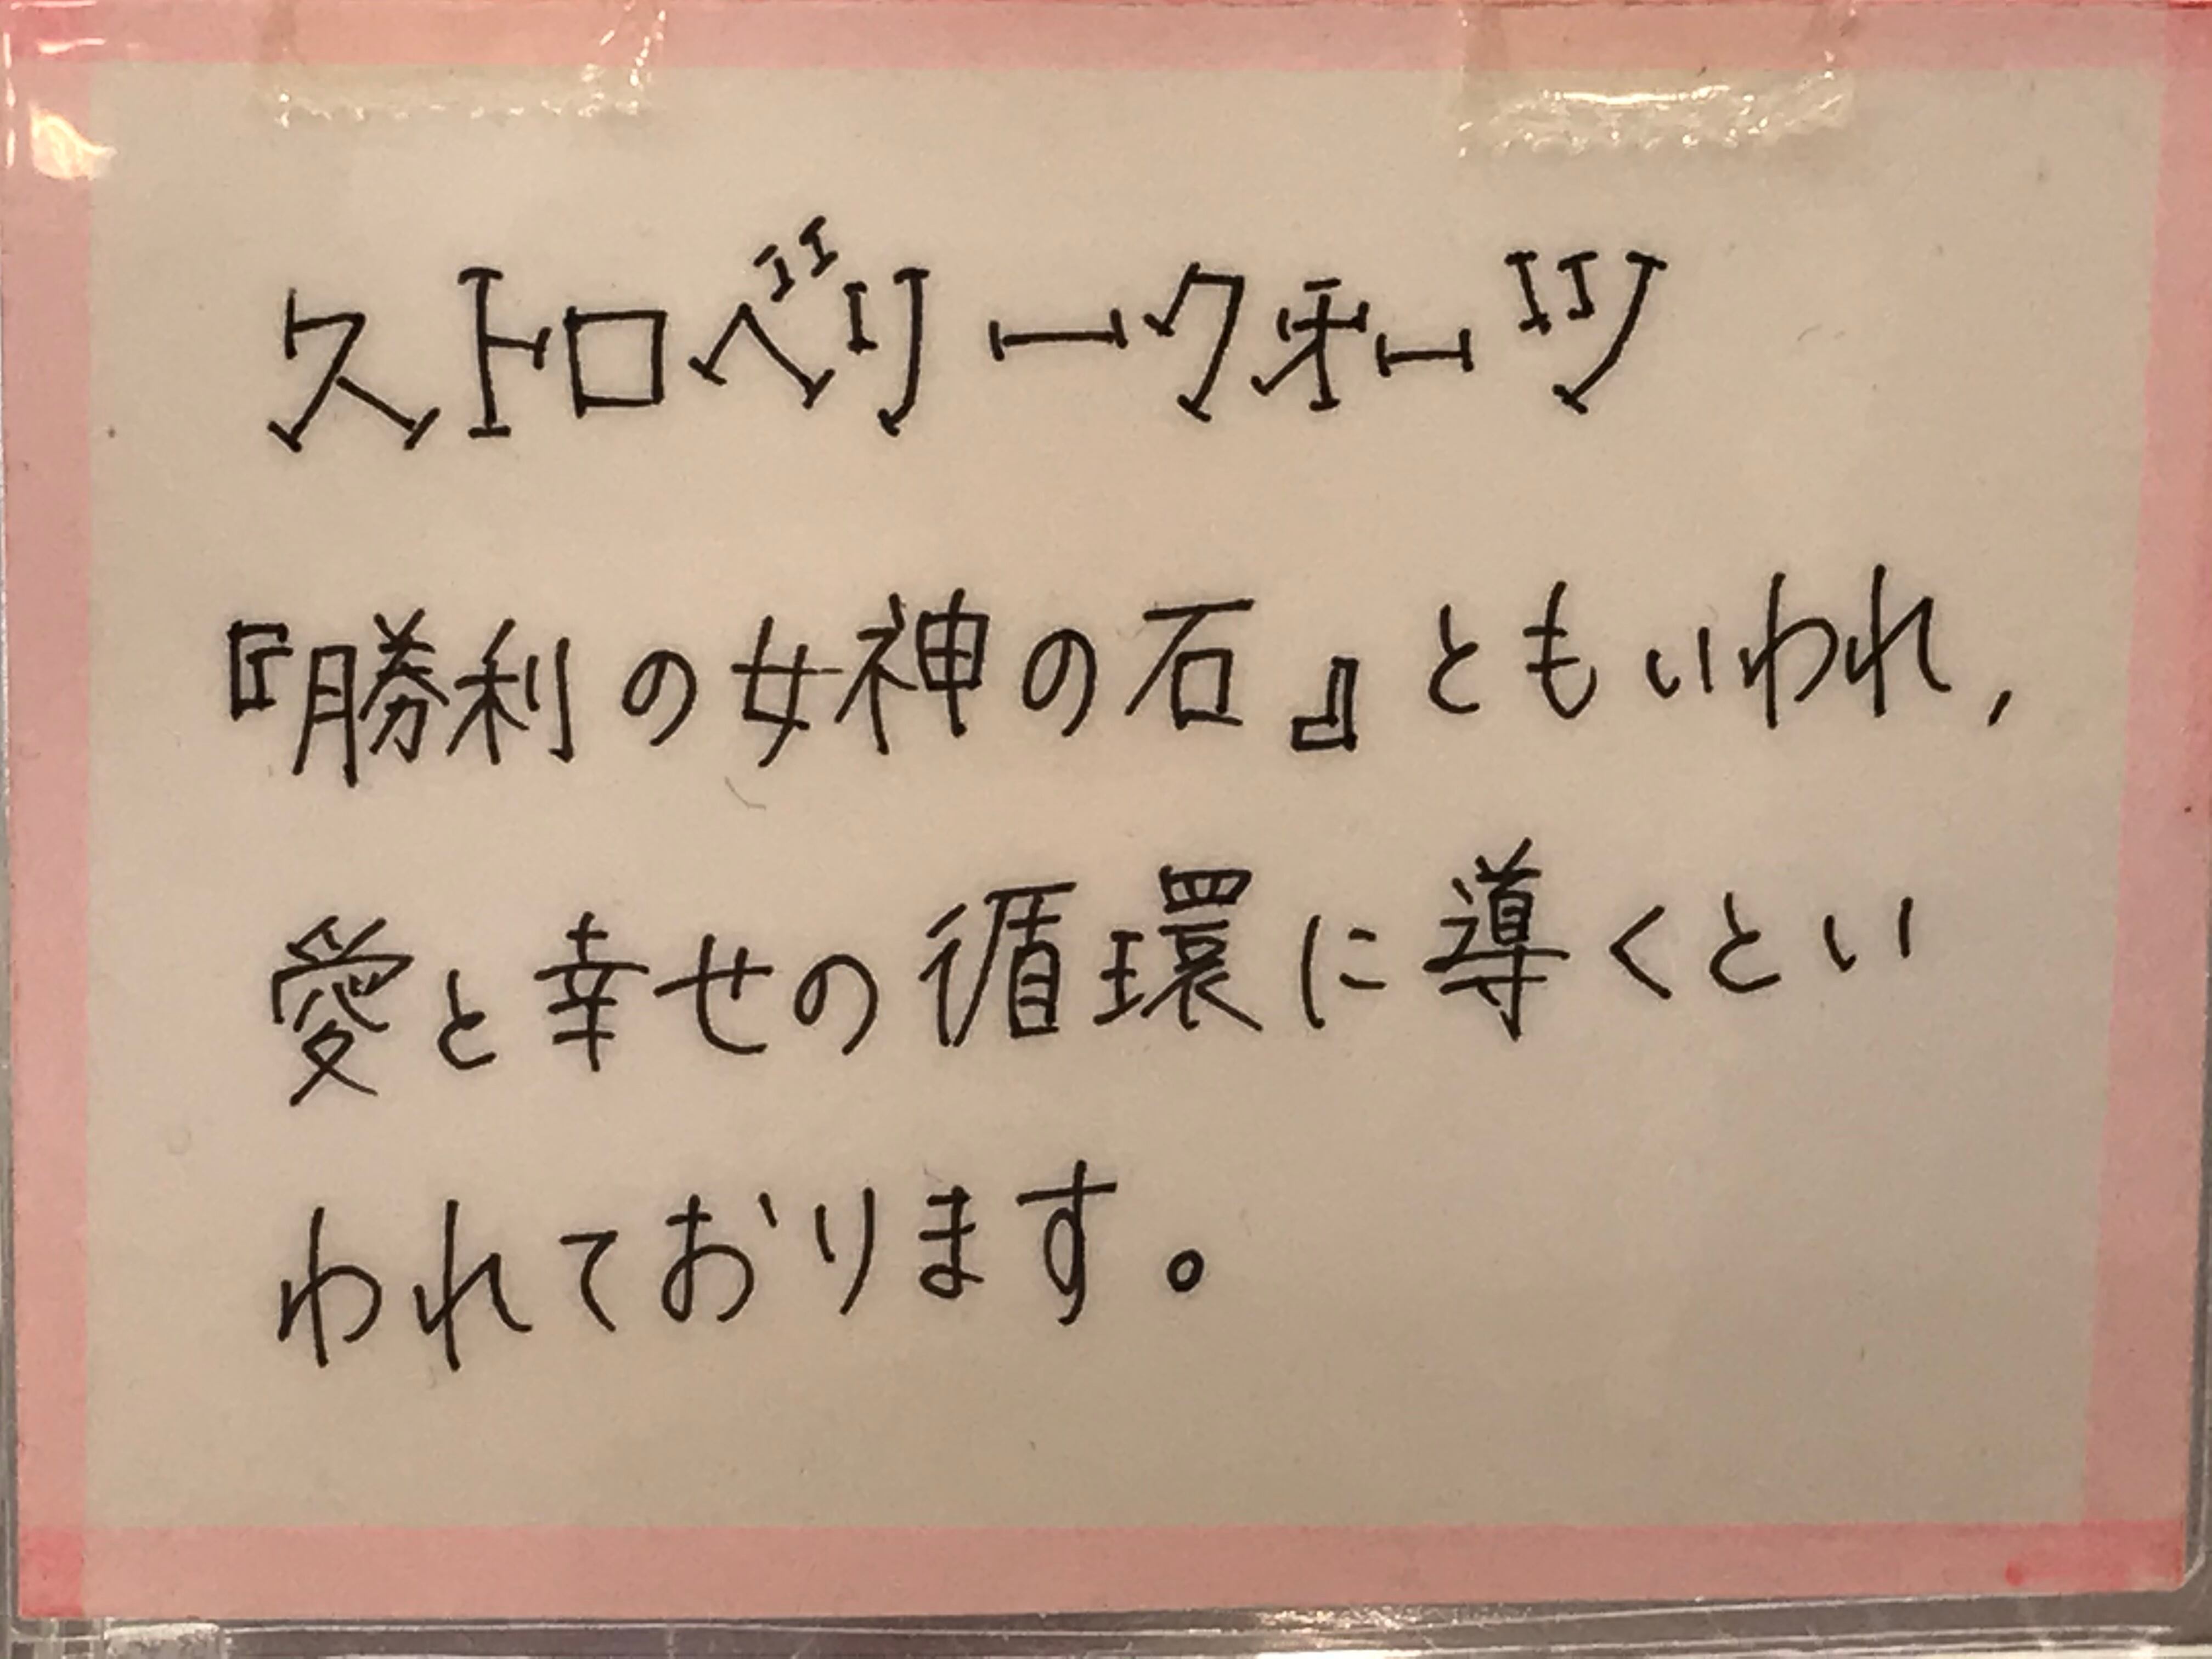 ストロベリークォーツ
『勝利の女神の石』ともいわれ,
愛と幸せの循環に導くとい
われております。